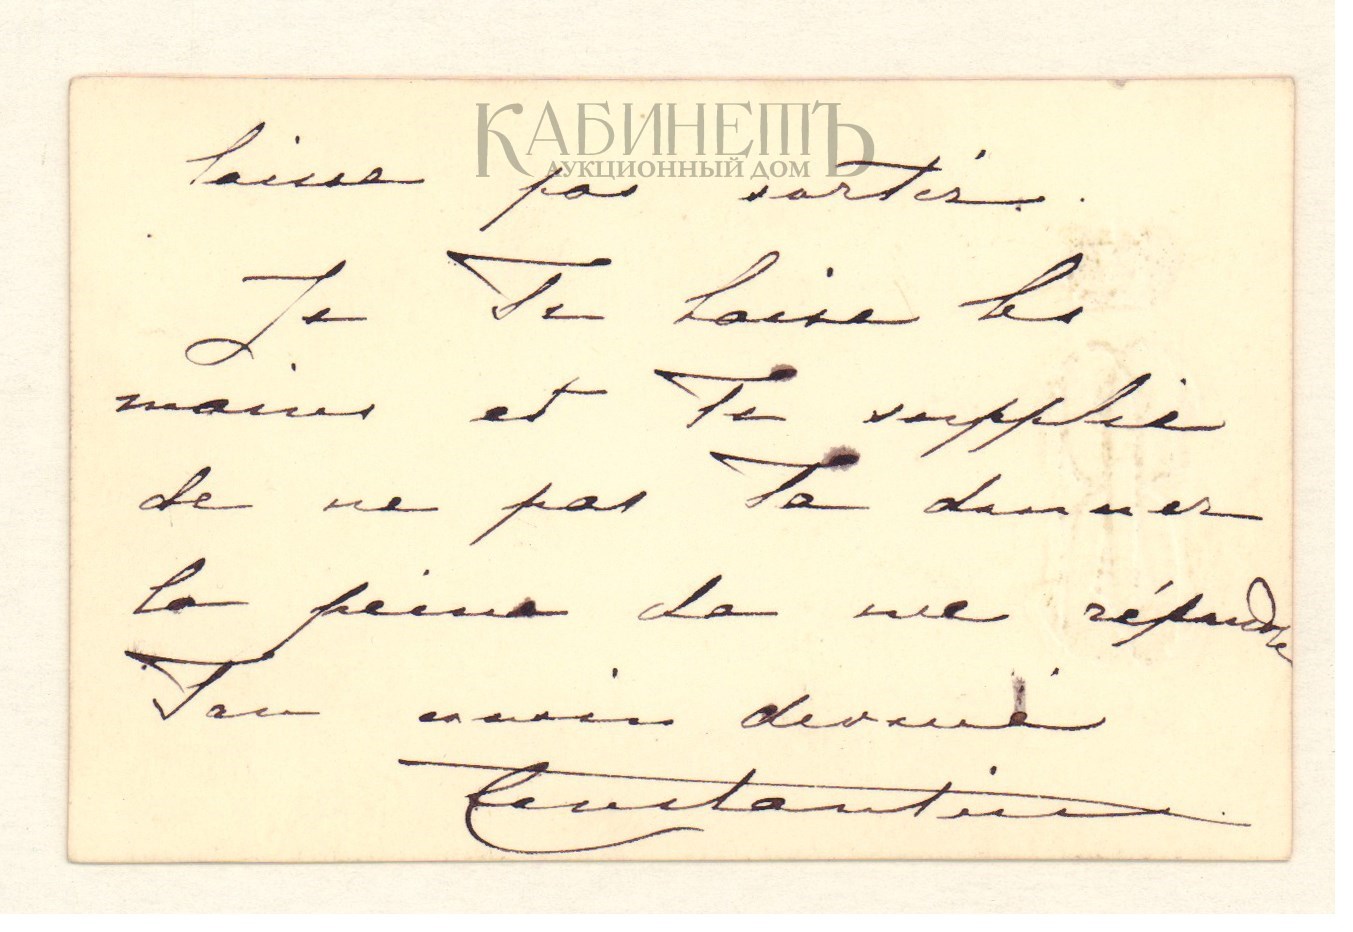 КАБИНЕТЪ
АУКЦИОННЫЙ ДОМ
laisse pas sortir.
Je Te baise les
mains et Te supplie
de ne pas Te donner
la peine de me répondre
Ton devoué
Constantin.